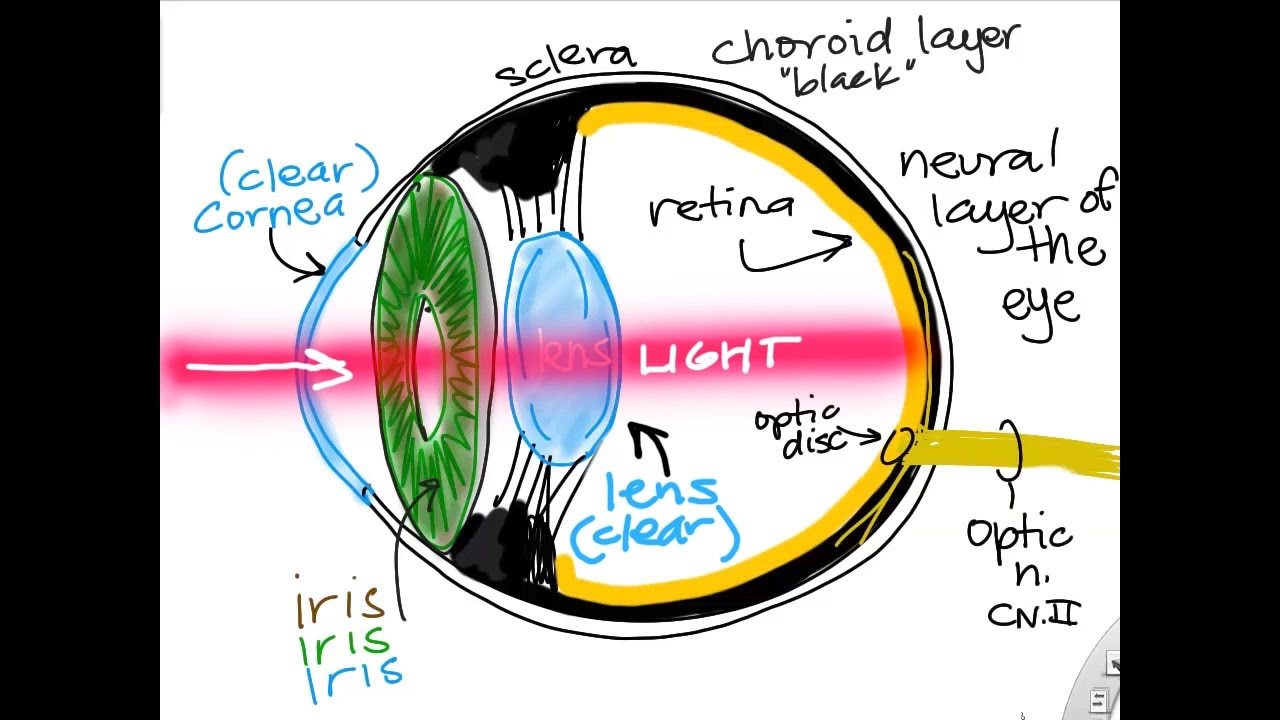 sclera
choroid layer
"black"
(clear)
cornea
neural
layer of
the
eye
retina
lens
LIGHT
optic
disc
lens
(clear)
optic
n.
CN.II
iris
iris
iris